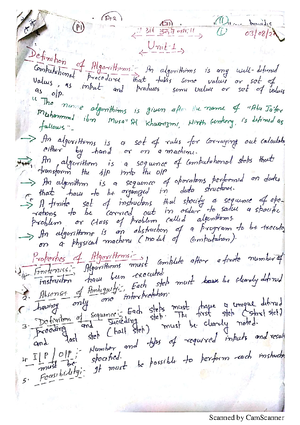 P1
03/08/
Unit-1
Definition of Algorithms:- An algorithms is any well-defined
Computational procedure that takes some values or set of
values, as input and produces some value or set of values
as o/p.
"The name algorithms is given after the name of "Abu Ja'far
Muhammad ibn Musa al Khwarizmi, Ninth Century, is defined as
follows"
→ An algorithms is a set of rules for carrying out calculate
either by hand or on a machine.
→ An algorithm is a sequence of computational steps that
transform the I/P into the O/P
→ An algorithm is a sequence of operations performed on data
that have to be organized in data structure.
→ A finite set of instructions that specify a sequence of ope-
rations to be carried out in order to solve a specific
problem or class of problem called algorithms
→ An algorithms is an abstraction of a program to be execute
on a Physical machine (model of Computation).
Properties of Algorithms:-
1. Finiteness: Algorithms must complete after a finite number of
instruction have been executed.
2. Absence of Ambiguity: Each step must be clearly defined
having only one interpretation.
3. Definition of Sequence: Each step must have a unique defined
preceding and succeeding step. The first step (start step)
and last step (halt step) must be clearly noted.
4. I/P / O/P: Number and types of required inputs and results
must be specified.
5. Feasibility: It must be possible to perform each instruction
Scanned by CamScanner